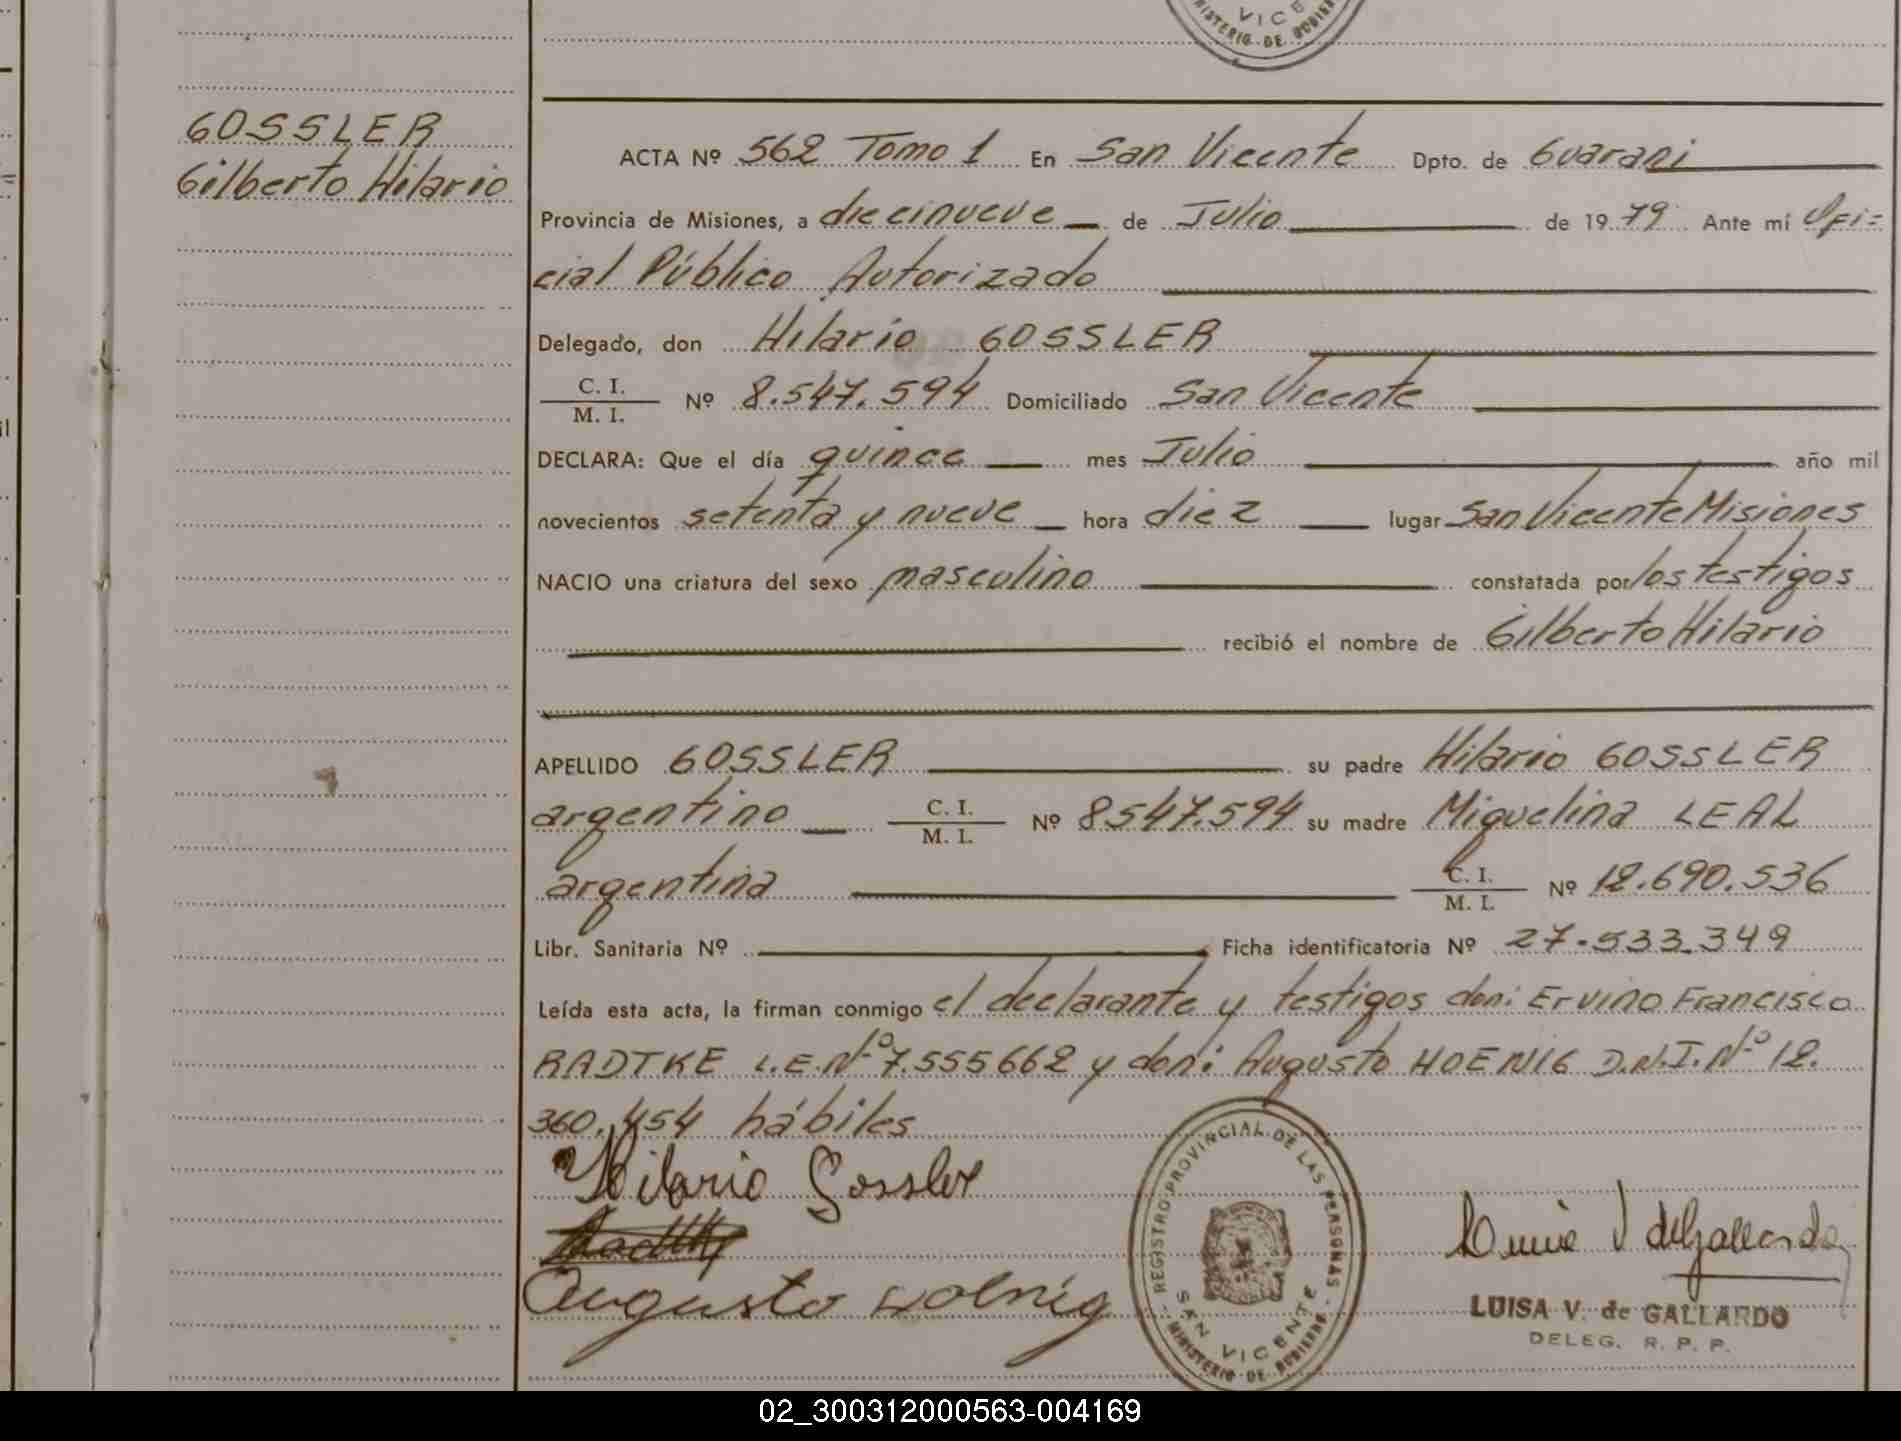 VICE
MINISTERIO DE GOBIERNO
GOSSLER
Gilberto Hilario
ACTA Nº 562 Tomo 1 En San Vicente Dpto. de Guarani
Provincia de Misiones, a diecinueve de Julio de 1979 Ante mí Ofi=
cial Público Autorizado
Delegado, don Hilario GOSSLER
C. I.
M. I. Nº 8.547.594 Domiciliado San Vicente
DECLARA: Que el día quince mes Julio año mil
novecientos setenta y nueve hora diez lugar San Vicente Misiones
NACIO una criatura del sexo masculino constatada por los testigos
recibió el nombre de Gilberto Hilario
APELLIDO GOSSLER su padre Hilario GOSSLER
argentino C. I. M. I. Nº 8547.594 su madre Miguelina LEAL
argentina C. I. M. I. Nº 12.690.536
Libr. Sanitaria Nº Ficha identificatoria Nº 27.533.349
Leída esta acta, la firman conmigo el declarante y testigos don: Ervino Francisco
RADTKE L.E.Nº 7.555662 y don: Augusto HOENIG D.N.I.Nº 12.
360.454 hábiles
Hilario Gossler
Augusto Hoenig
REGISTRO PROVINCIAL DE LAS PERSONAS
SAN VICENTE
MINISTERIO DE GOBIERNO
LUISA V. de GALLARDO
DELEG. R. P. P.
02_300312000563-004169